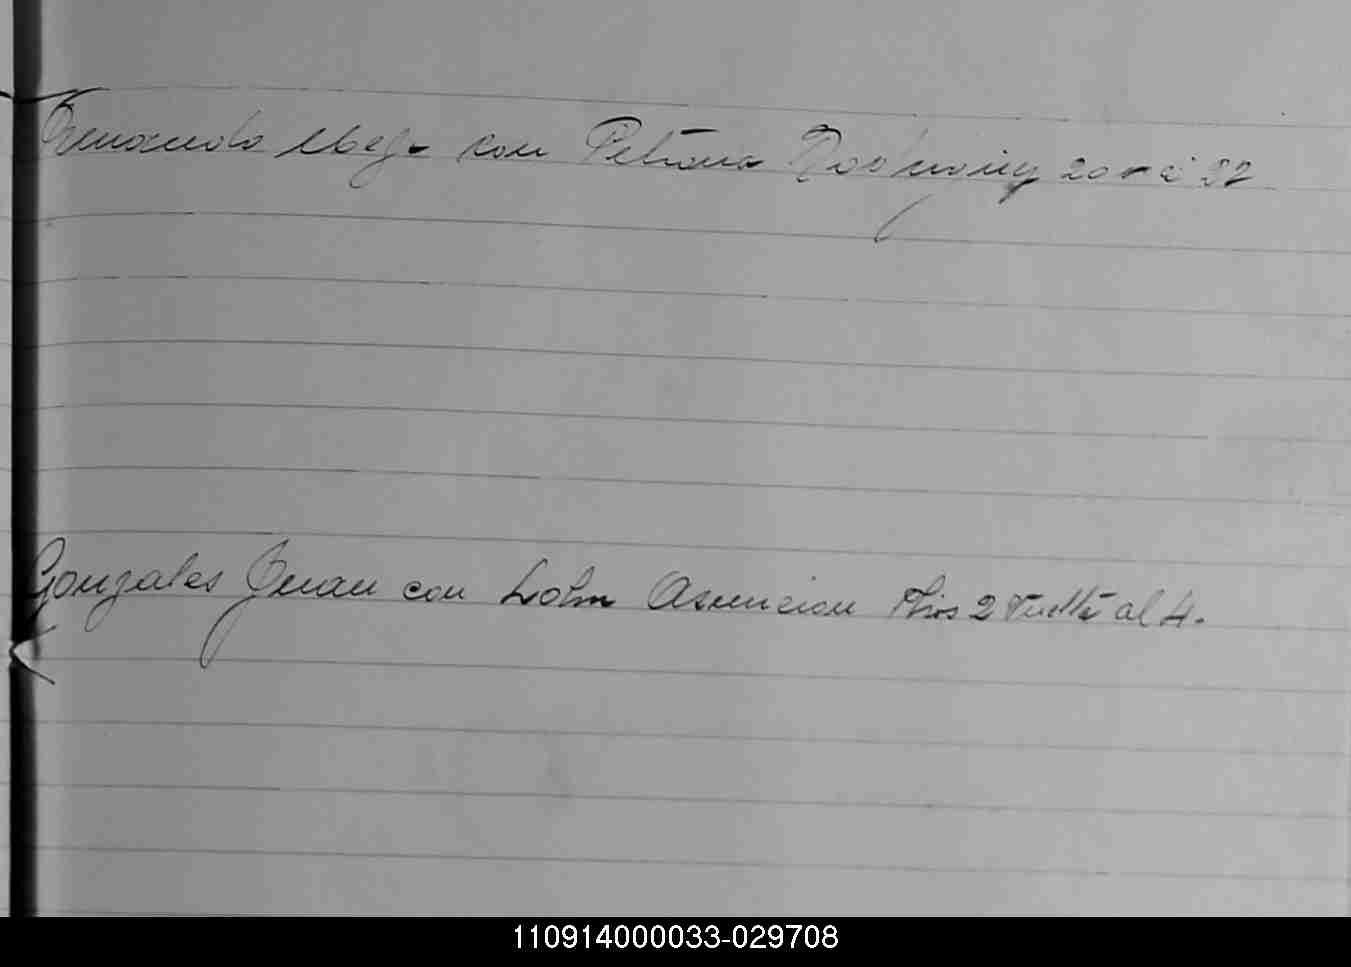 Fernando con Petrona Rodriguez 20 a 22
Gonzales Juan con Asuncion fjas 2 vuelta al 4.
110914000033-029708